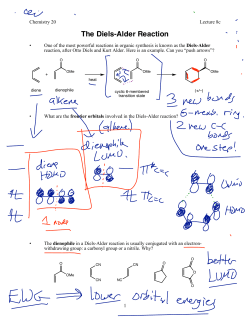 Chemistry 20
Lecture 8c
The Diels-Alder Reaction
• One of the most powerful reactions in organic synthesis is known as the Diels-Alder
reaction, after Otto Diels and Kurt Alder. Here is an example. Can you "push arrows"?
O
OMe
heat
O
OMe
O
OMe
diene
dienophile
cyclic 6-membered
transition state
(+/-)
alkene
3 new bonds
6-memb. ring
2 new c-c
bonds
one step!
• What are the frontier orbitals involved in the Diels-Alder Reaction?
(alkene)
dienophile
LUMO
diene
HOMO
π*c=c
πc=c
LUMO
HOMO
1 node
• The dienophile in a Diels-Alder reaction is usually conjugated with an electron-
withdrawing group: a carbonyl group or a nitrile. Why?
O
OMe
CN
CN
NC
CN
O
O
O
O
better
LUMO
EWG
lower orbital energies